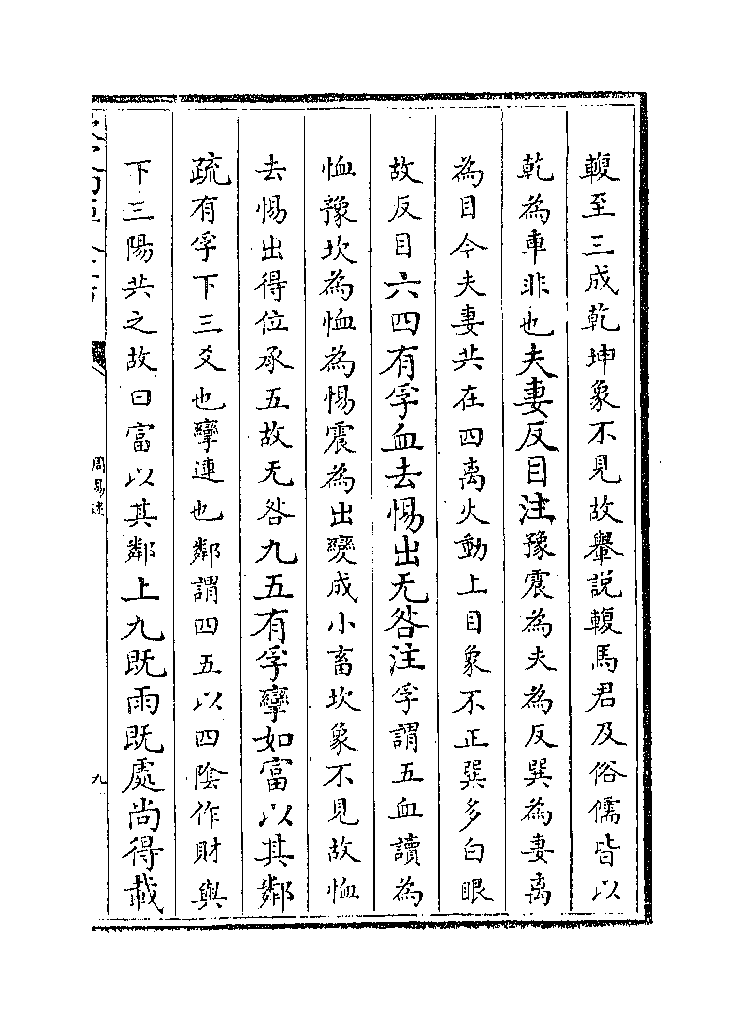 輹至三成乾坤象不見故舉説輹馬君及俗儒皆以
乾為車非也夫妻反目注豫震為夫為反巽為妻離
為目今夫妻共在四離火動上目象不正巽多白眼
故反目六四有孚血去惕出无咎注孚謂五血讀為
恤豫坎為恤為惕震為出變成小畜坎象不見故恤
去惕出得位承五故无咎九五有孚攣如富以其鄰
疏有孚下三爻也攣連也鄰謂四五以四陰作財與
下三陽共之故曰富以其鄰上九既雨既處尚得載
周易述
九